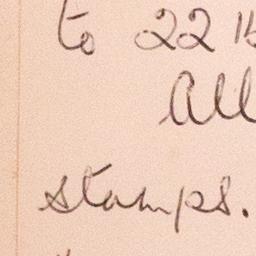 to 22 lb
All
stamps.